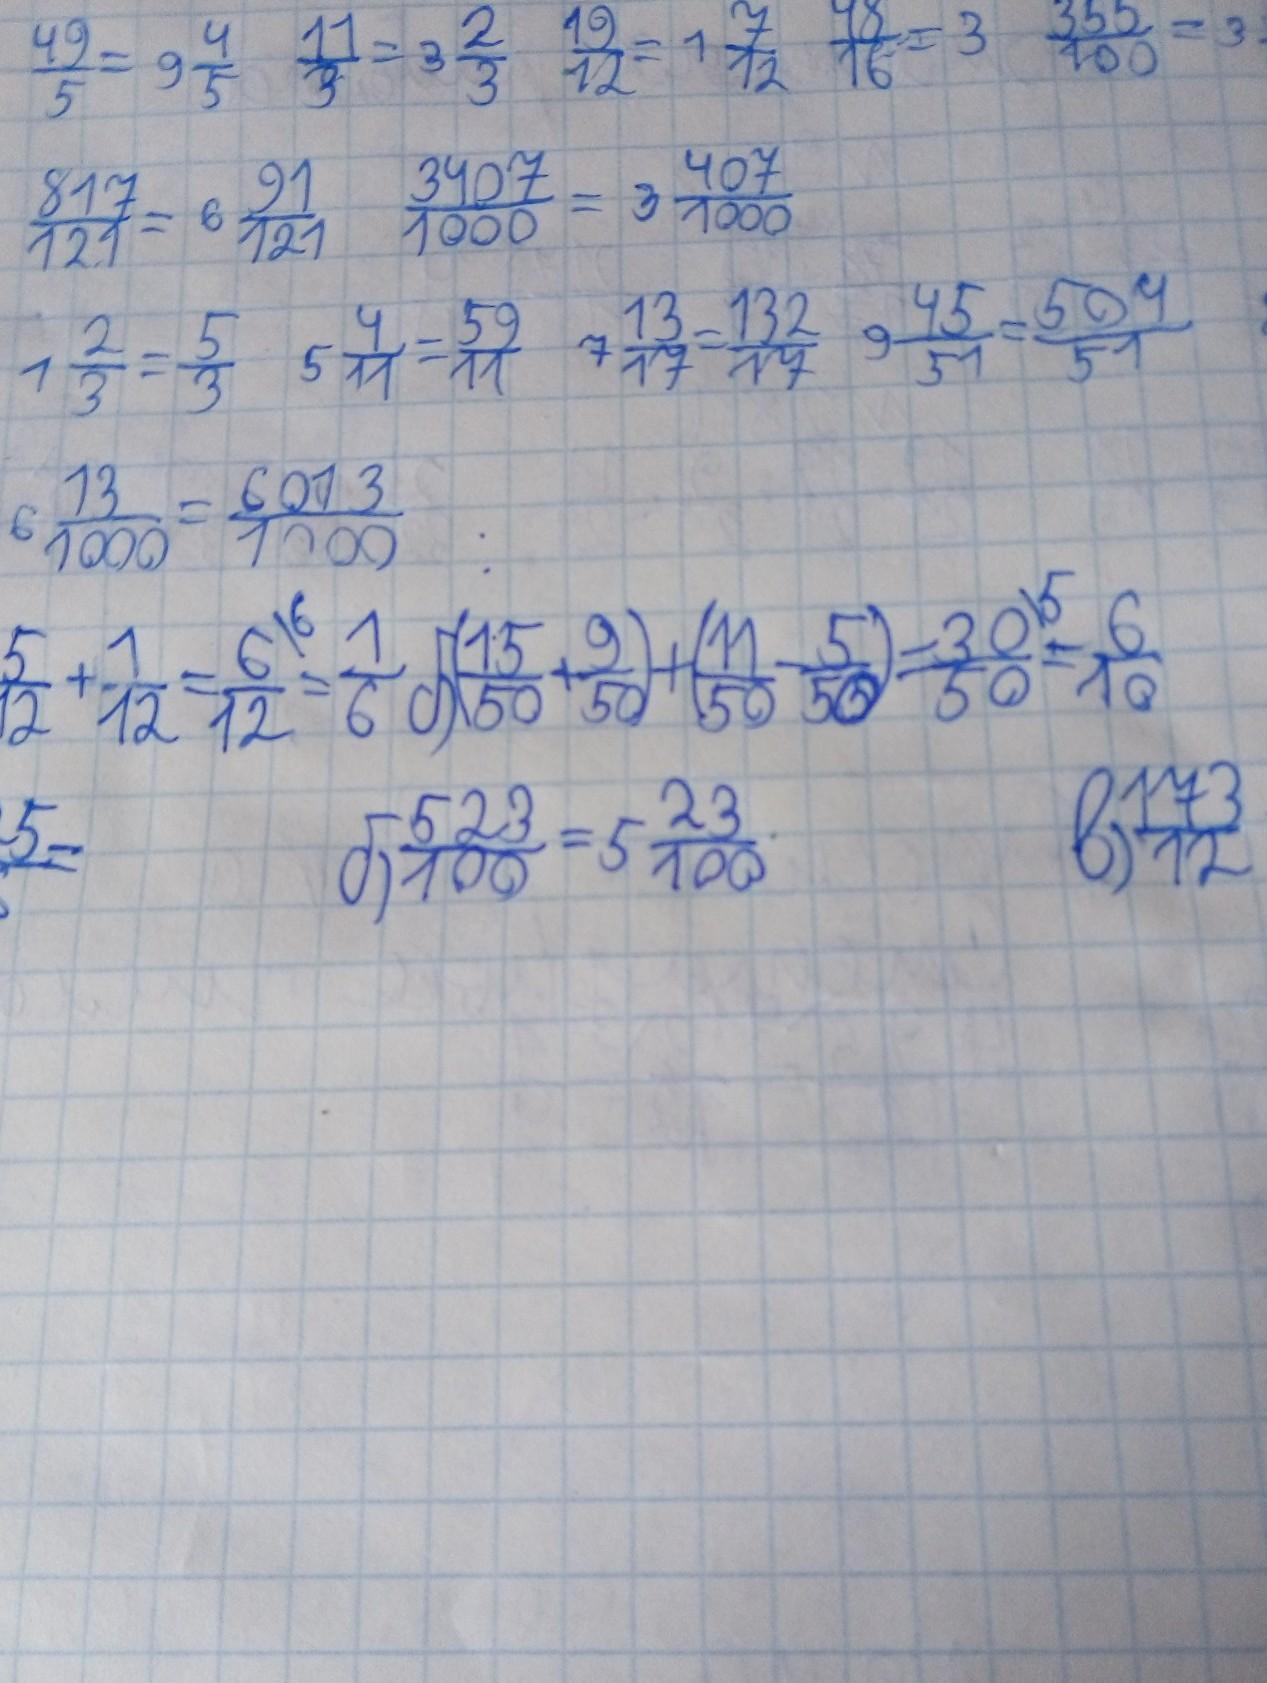 49/5 = 9 4/5 11/3 = 3 2/3 19/12 = 1 7/12 48/16 = 3 355/100 = 3
817/121 = 6 91/121 3407/1000 = 3 407/1000
1 2/3 = 5/3 5 4/11 = 59/11 7 13/17 = 132/17 9 45/51 = 504/51
6 13/1000 = 6013/1000
5/12 + 1/12 = 6\6/12 = 1/6 б) (15/50 + 9/50) + (11/50 - 5/50) = 30\5/50 = 6/10
5 = б) 523/100 = 5 23/100 в) 173/12